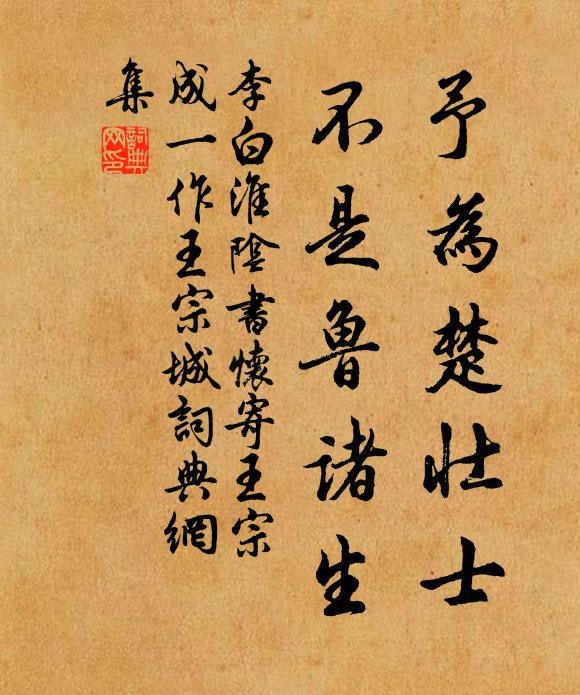 予為楚壯士
不是魯諸生
李白淮陰書懷寄王宗
成一作王宗城詞典網
集
詞典
网印